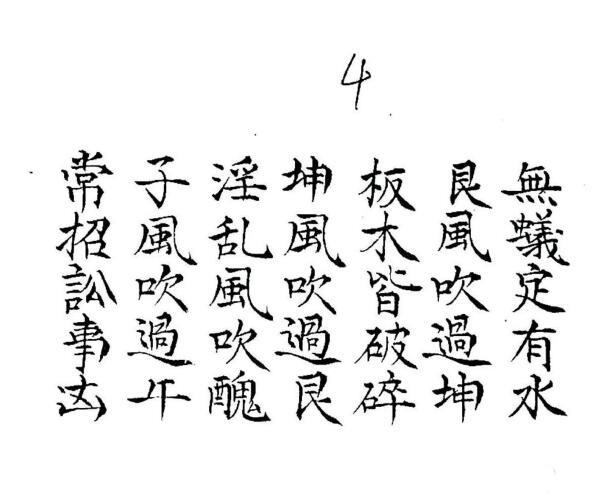 4
無蟻定有水
艮風吹過坤
板木皆破碎
坤風吹過艮
淫乱風吹醜
子風吹過午
常招訟事凶